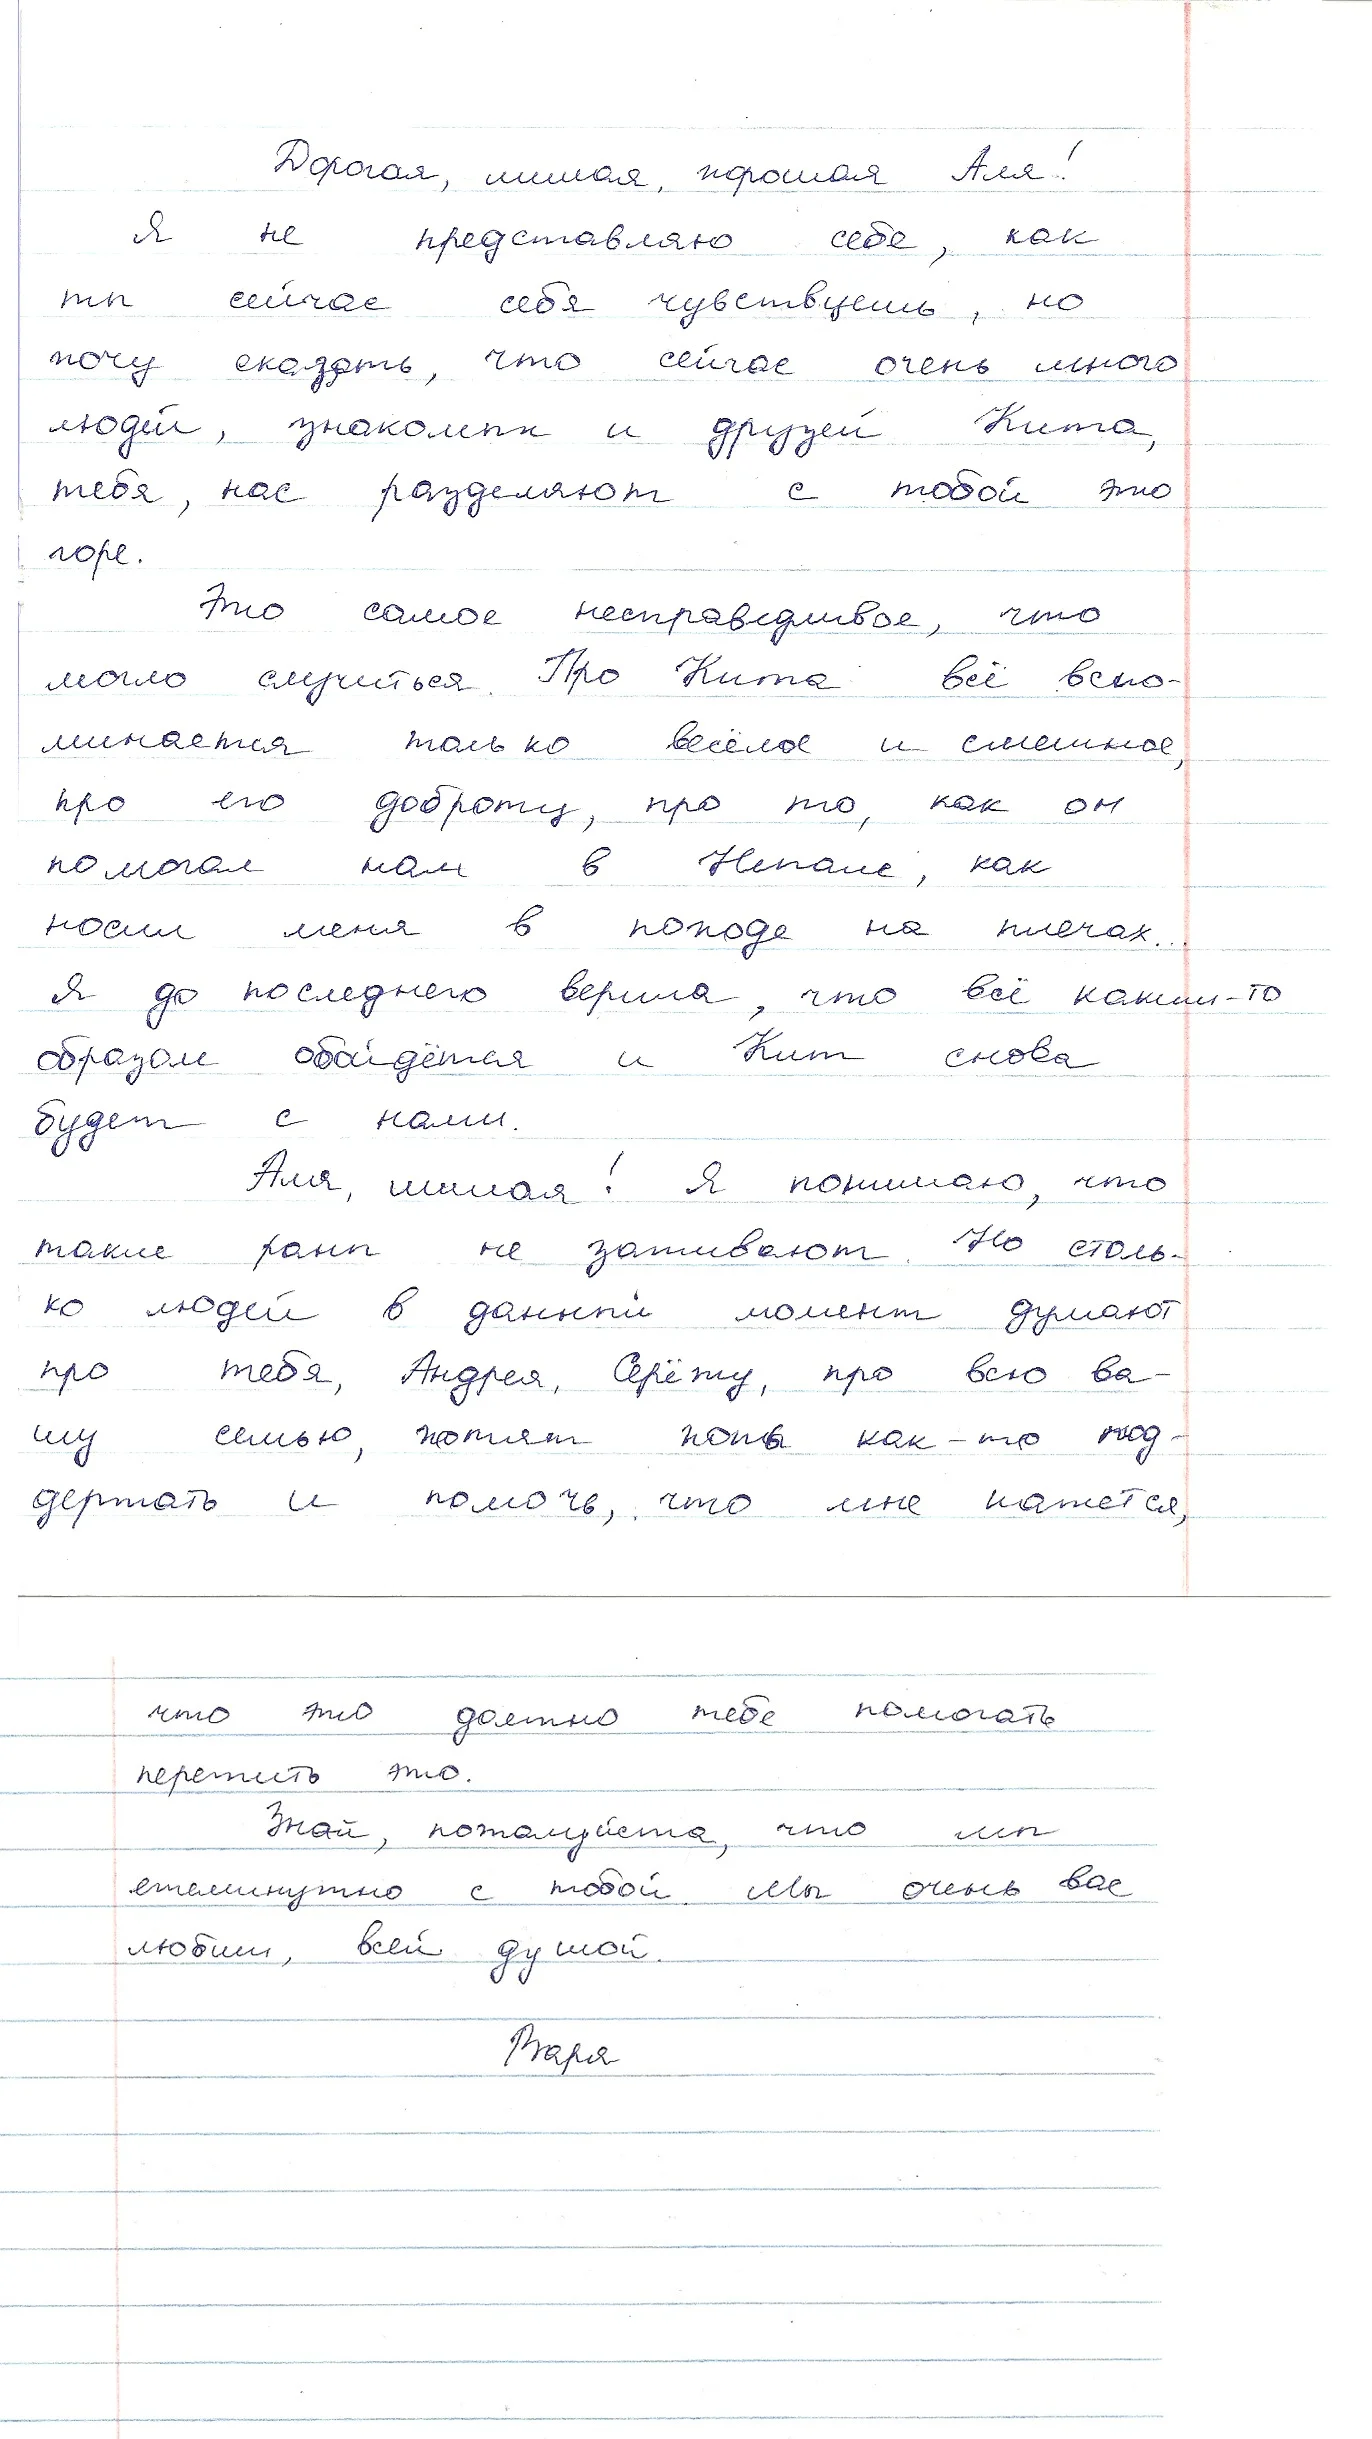 Дорогая, милая, хорошая Аля!
Я не представляю себе, как
ты сейчас себя чувствуешь, но
хочу сказать, что сейчас очень много
людей, знакомых и друзей Кита,
тебя, нас разделяют с тобой это
горе.
Это самое несправедливое, что
могло случиться. Про Кита всё вспо-
минается только весёлое и смешное,
про его доброту, про то, как он
помогал нам в Непале, как
носил меня в походе на плечах...
Я до последнего верила, что всё каким-то
образом обойдётся и Кит снова
будет с нами.
Аля, милая! Я понимаю, что
такие раны не заживают. Но столь-
ко людей в данный момент думают
про тебя, Андрея, Серёжу, про всю ва-
шу семью, хотят хоть как-то под-
держать и помочь, что мне кажется,
что это должно тебе помогать
пережить это.
Знай, пожалуйста, что мы
ежеминутно с тобой. Мы очень вас
любим, всей душой.
Варя